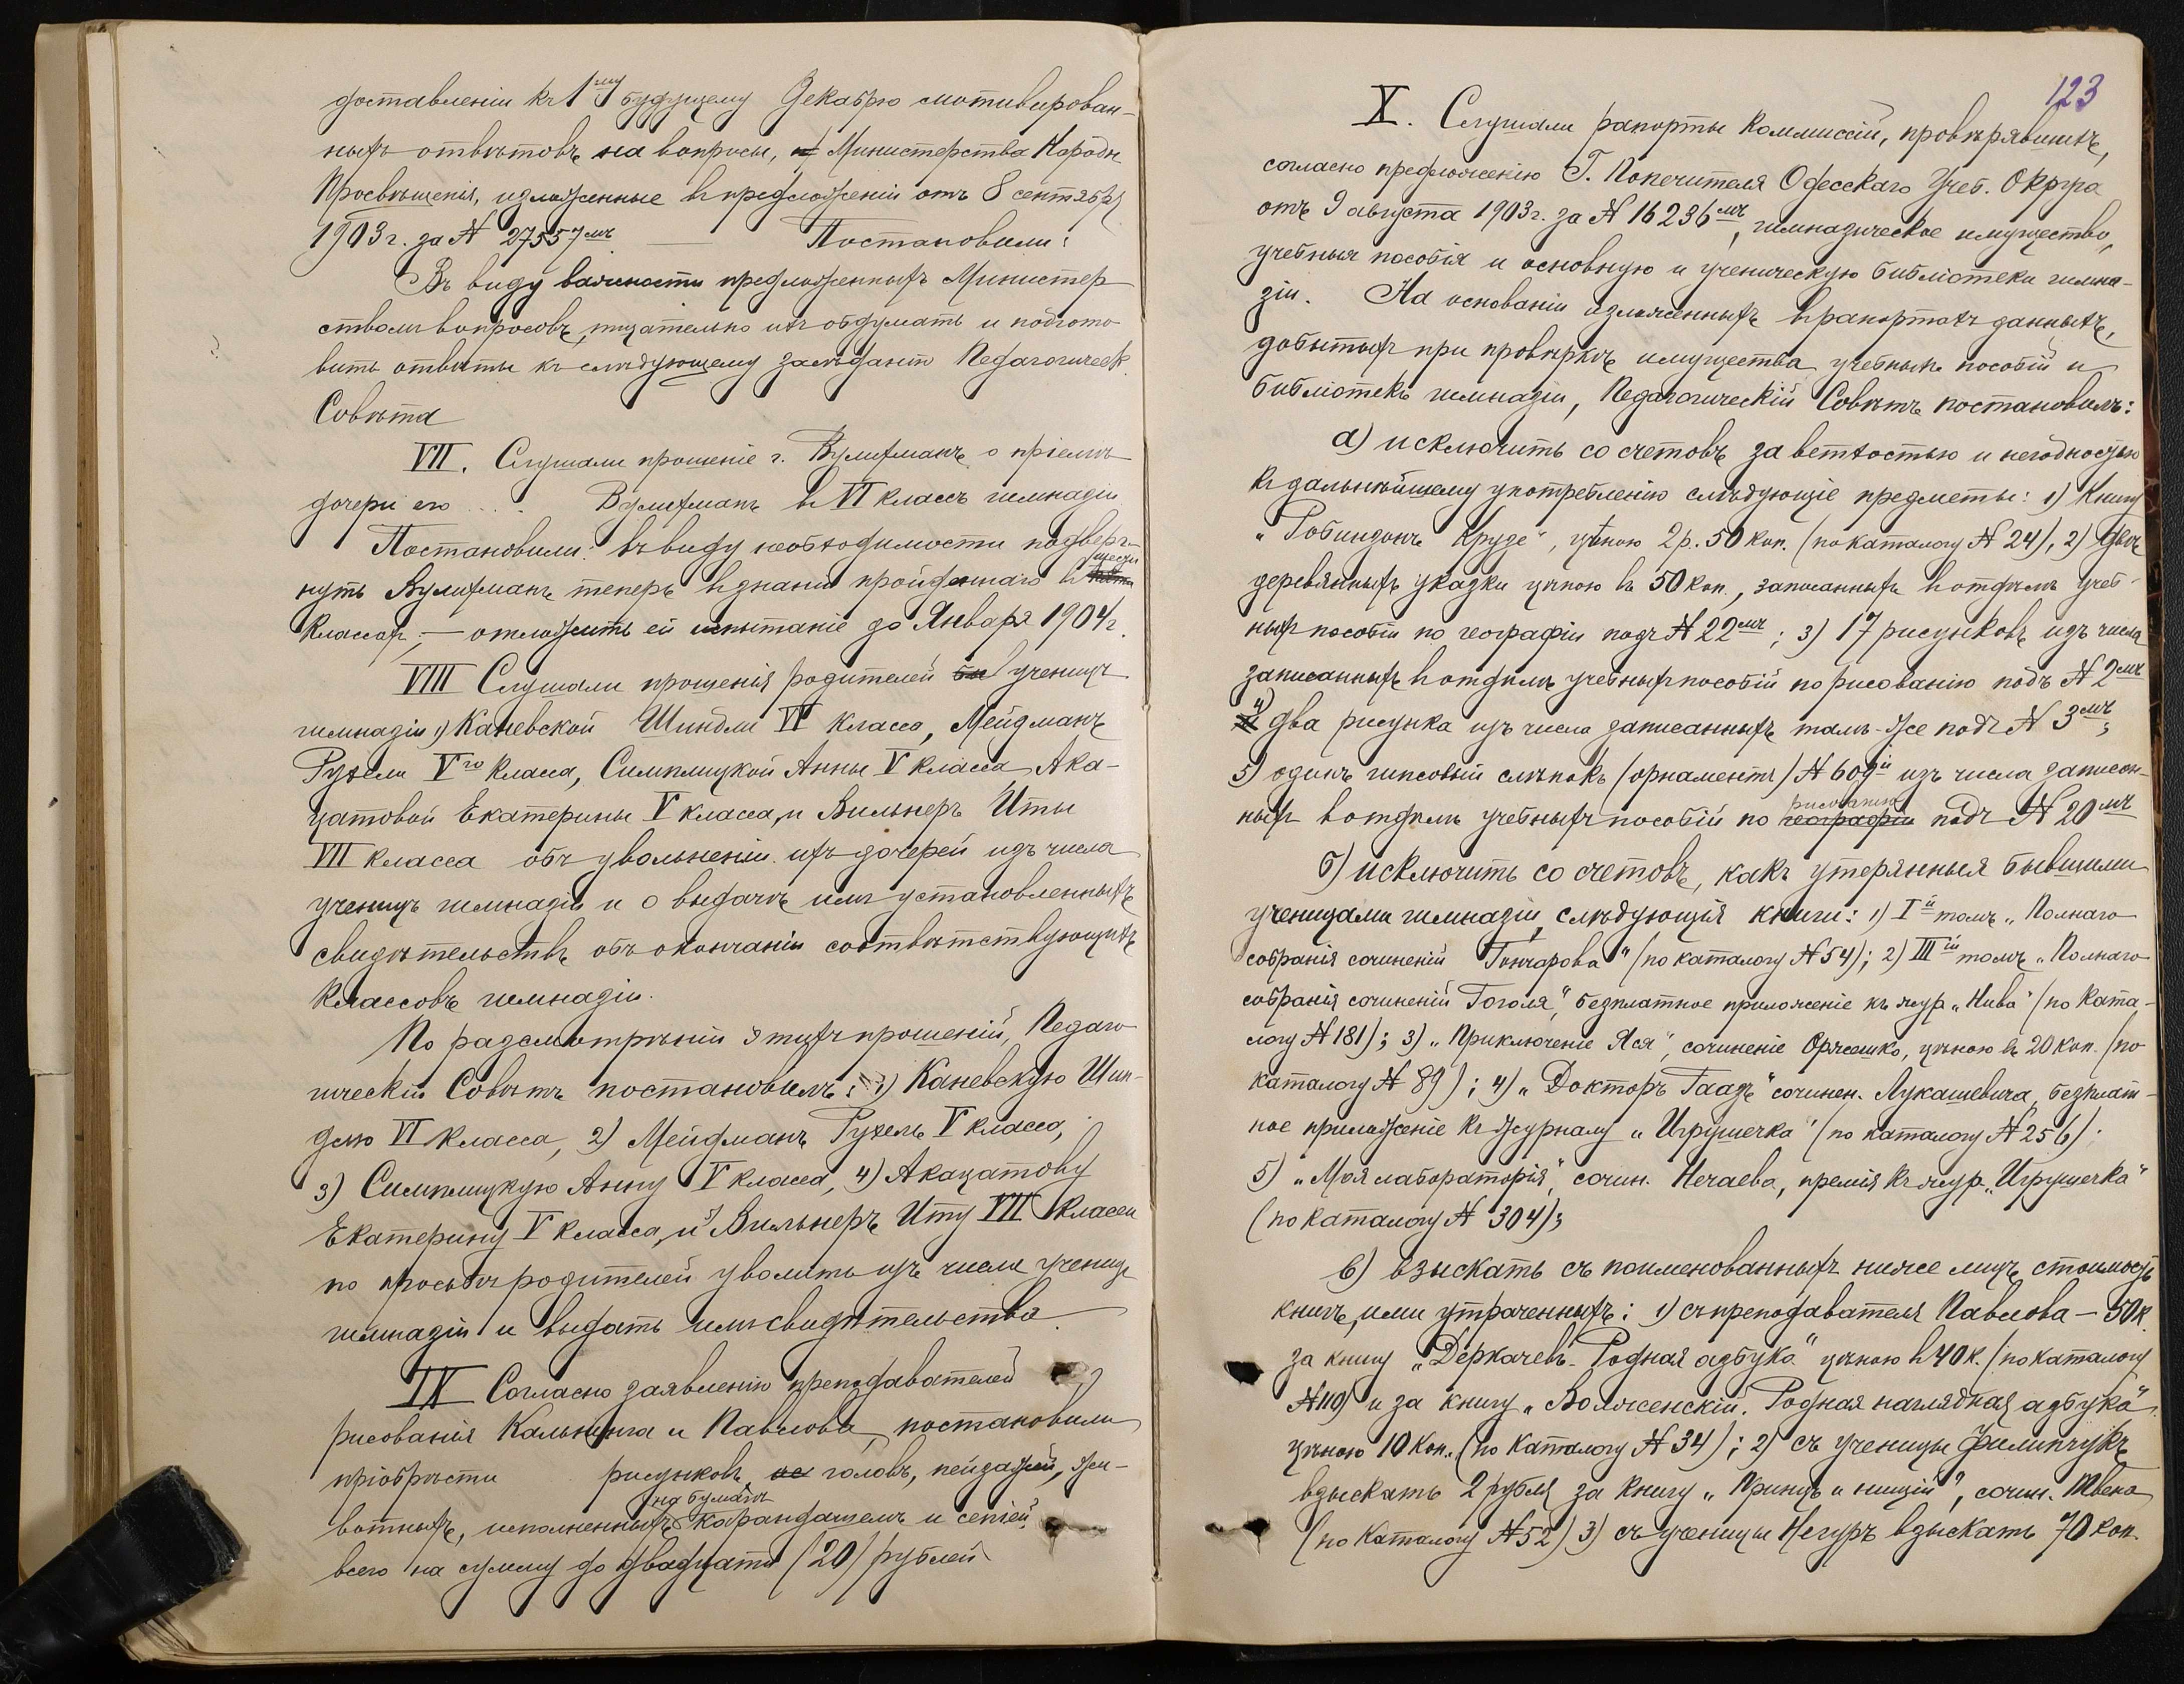 доставленіи къ 1му будущему Декабрю мотивирован-
ныхъ отвѣтовъ на вопросы, Министерства Народн.
Просвѣщенія, изложенные въ предложеніи отъ 8 сентября
1903 г. за № 27557мъ — Постановили:
Въ виду важности предложенныхъ Министер
ствомъ вопросовъ, тщательно ихъ обдумать и подгото
вить отвѣты къ слѣдующему засѣданію Педагогическ.
Совѣта
VII. Слушали прошеніе г. Вулихманъ о пріемѣ
дочери его . . . Вулихманъ въ VI классъ гимназіи
Постановили: въ виду необходимости подверг-
нуть Вулихманъ теперь въ знаніи пройденнаго въ шести
классахъ, — отложить ей испытаніе до Января 1904 г.
VIII Слушали прошенія родителей ученицъ
гимназіи 1) Каневской Шиндли VI класса, Мейдманъ
Рухели Vго класса, Симплицкой Анны V класса Ака-
цатовой Екатерины V класса, и Вильнеръ Иты
VII класса объ увольненіи ихъ дочерей изъ числа
ученицъ гимназіи и о выдачѣ имъ установленныхъ
свидѣтельствъ объ окончаніи соотвѣтствующихъ
классовъ гимназіи.
По разсмотрѣніи этихъ прошеній, Педаго
гическій Совѣтъ постановилъ: 1) Каневскую Шин-
длю VI класса, 2) Мейдманъ Рухель V класса,
3) Симплицкую Анну V класса, 4) Акацатову
Екатерину V класса, и 5) Вильнеръ Иту VII класса
по просьбѣ родителей уволить изъ числа ученицъ
гимназіи и выдать имъ свидѣтельства.
IX Согласно заявленію преподавателей
рисованія Кальнинга и Павлова, постановили
пріобрѣсти рисунковъ головъ, пейзажей, жи-
на бумагѣ
вотныхъ, исполненныхъ карандашемъ и сепіей,
всего на сумму до двадцати (20) рублей
123
X. Слушали рапорты Коммиссій, провѣрявшихъ,
согласно предложенію Г. Попечителя Одесскаго Учеб. Округа
отъ 9 августа 1903 г. за № 16236мъ, гимназическое имущество,
учебныя пособія и основную и ученическую библіотеки гимна-
зіи. На основаніи изложенныхъ въ рапортахъ данныхъ,
добытыхъ при провѣркѣ имущества учебныхъ пособій и
библіотекъ гимназіи, Педагогическій Совѣтъ постановилъ:
а) исключить со счетовъ за ветхостью и негодностью
къ дальнѣйшему употребленію слѣдующіе предметы: 1) Книгу
„Робинзонъ Крузе", цѣною 2 р. 50 коп. (по каталогу № 24), 2) двѣ
деревянныхъ указки цѣною въ 50 коп., записанныхъ въ отдѣлъ учеб-
ныхъ пособій по географіи подъ № 22мъ; 3) 17 рисунковъ изъ числа
записанныхъ въ отдѣлъ учебныхъ пособій по рисованію подъ № 2мъ
4) два рисунка изъ числа записанныхъ тамъ-же подъ № 3мъ;
5) одинъ гипсовый слѣпокъ (орнаментъ) № 609й изъ числа записан-
рисованію
ныхъ въ отдѣлъ учебныхъ пособій по географіи подъ № 20мъ
б) исключить со счетовъ, какъ утерянныя бывшими
ученицами гимназіи, слѣдующія книги: 1) Iй томъ „Полнаго
собранія сочиненій Гончарова" (по каталогу № 54); 2) IIIій томъ „Полнаго
собранія сочиненій Гоголя", безплатное приложеніе къ жур. „Нива" (по ката-
логу № 181); 3) „Приключеніе Яся", сочиненіе Оржешко, цѣною въ 20 коп. (по
каталогу № 89); 4) „Докторъ Гаазъ" сочинен. Лукашевича, безплат-
ное приложеніе къ журналу „Игрушечка" (по каталогу № 256);
5) „Моя лабораторія", сочин. Нечаева, премія къ жур. „Игрушечка"
(по каталогу № 304);
в) взыскать съ поименованныхъ ниже лицъ стоимость
книгъ, ими утраченныхъ: 1) съ преподавателя Павлова — 50 к.
за книгу „Деркачевъ — Родная азбука" цѣною въ 40 к. (по каталогу
№ 119) и за книгу „Волженскій. Родная наглядная азбука"
цѣною 10 коп. (по каталогу № 34); 2) съ ученицы Филипчукъ
взыскать 2 рубля за книгу „Принцъ и нищій", сочин. Твена
(по каталогу № 52) 3) съ ученицы Негуръ взыскать 70 коп.